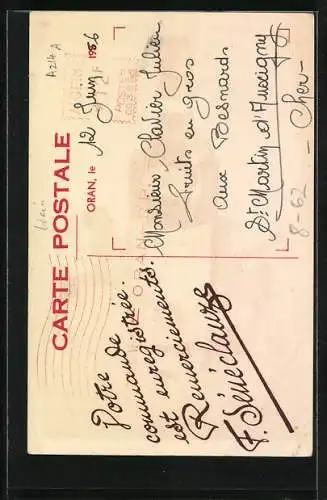 A214 A
CARTE POSTALE
ORAN, le 12 Juin 1956
Monsieur Clavier Julien
Fruits en gros
aux Besnards
St Martin d'Auxigny
- Cher -
8-62
Votre
commande
est enregistrée.
Remerciements.
F. Sénéclauze
ORAN